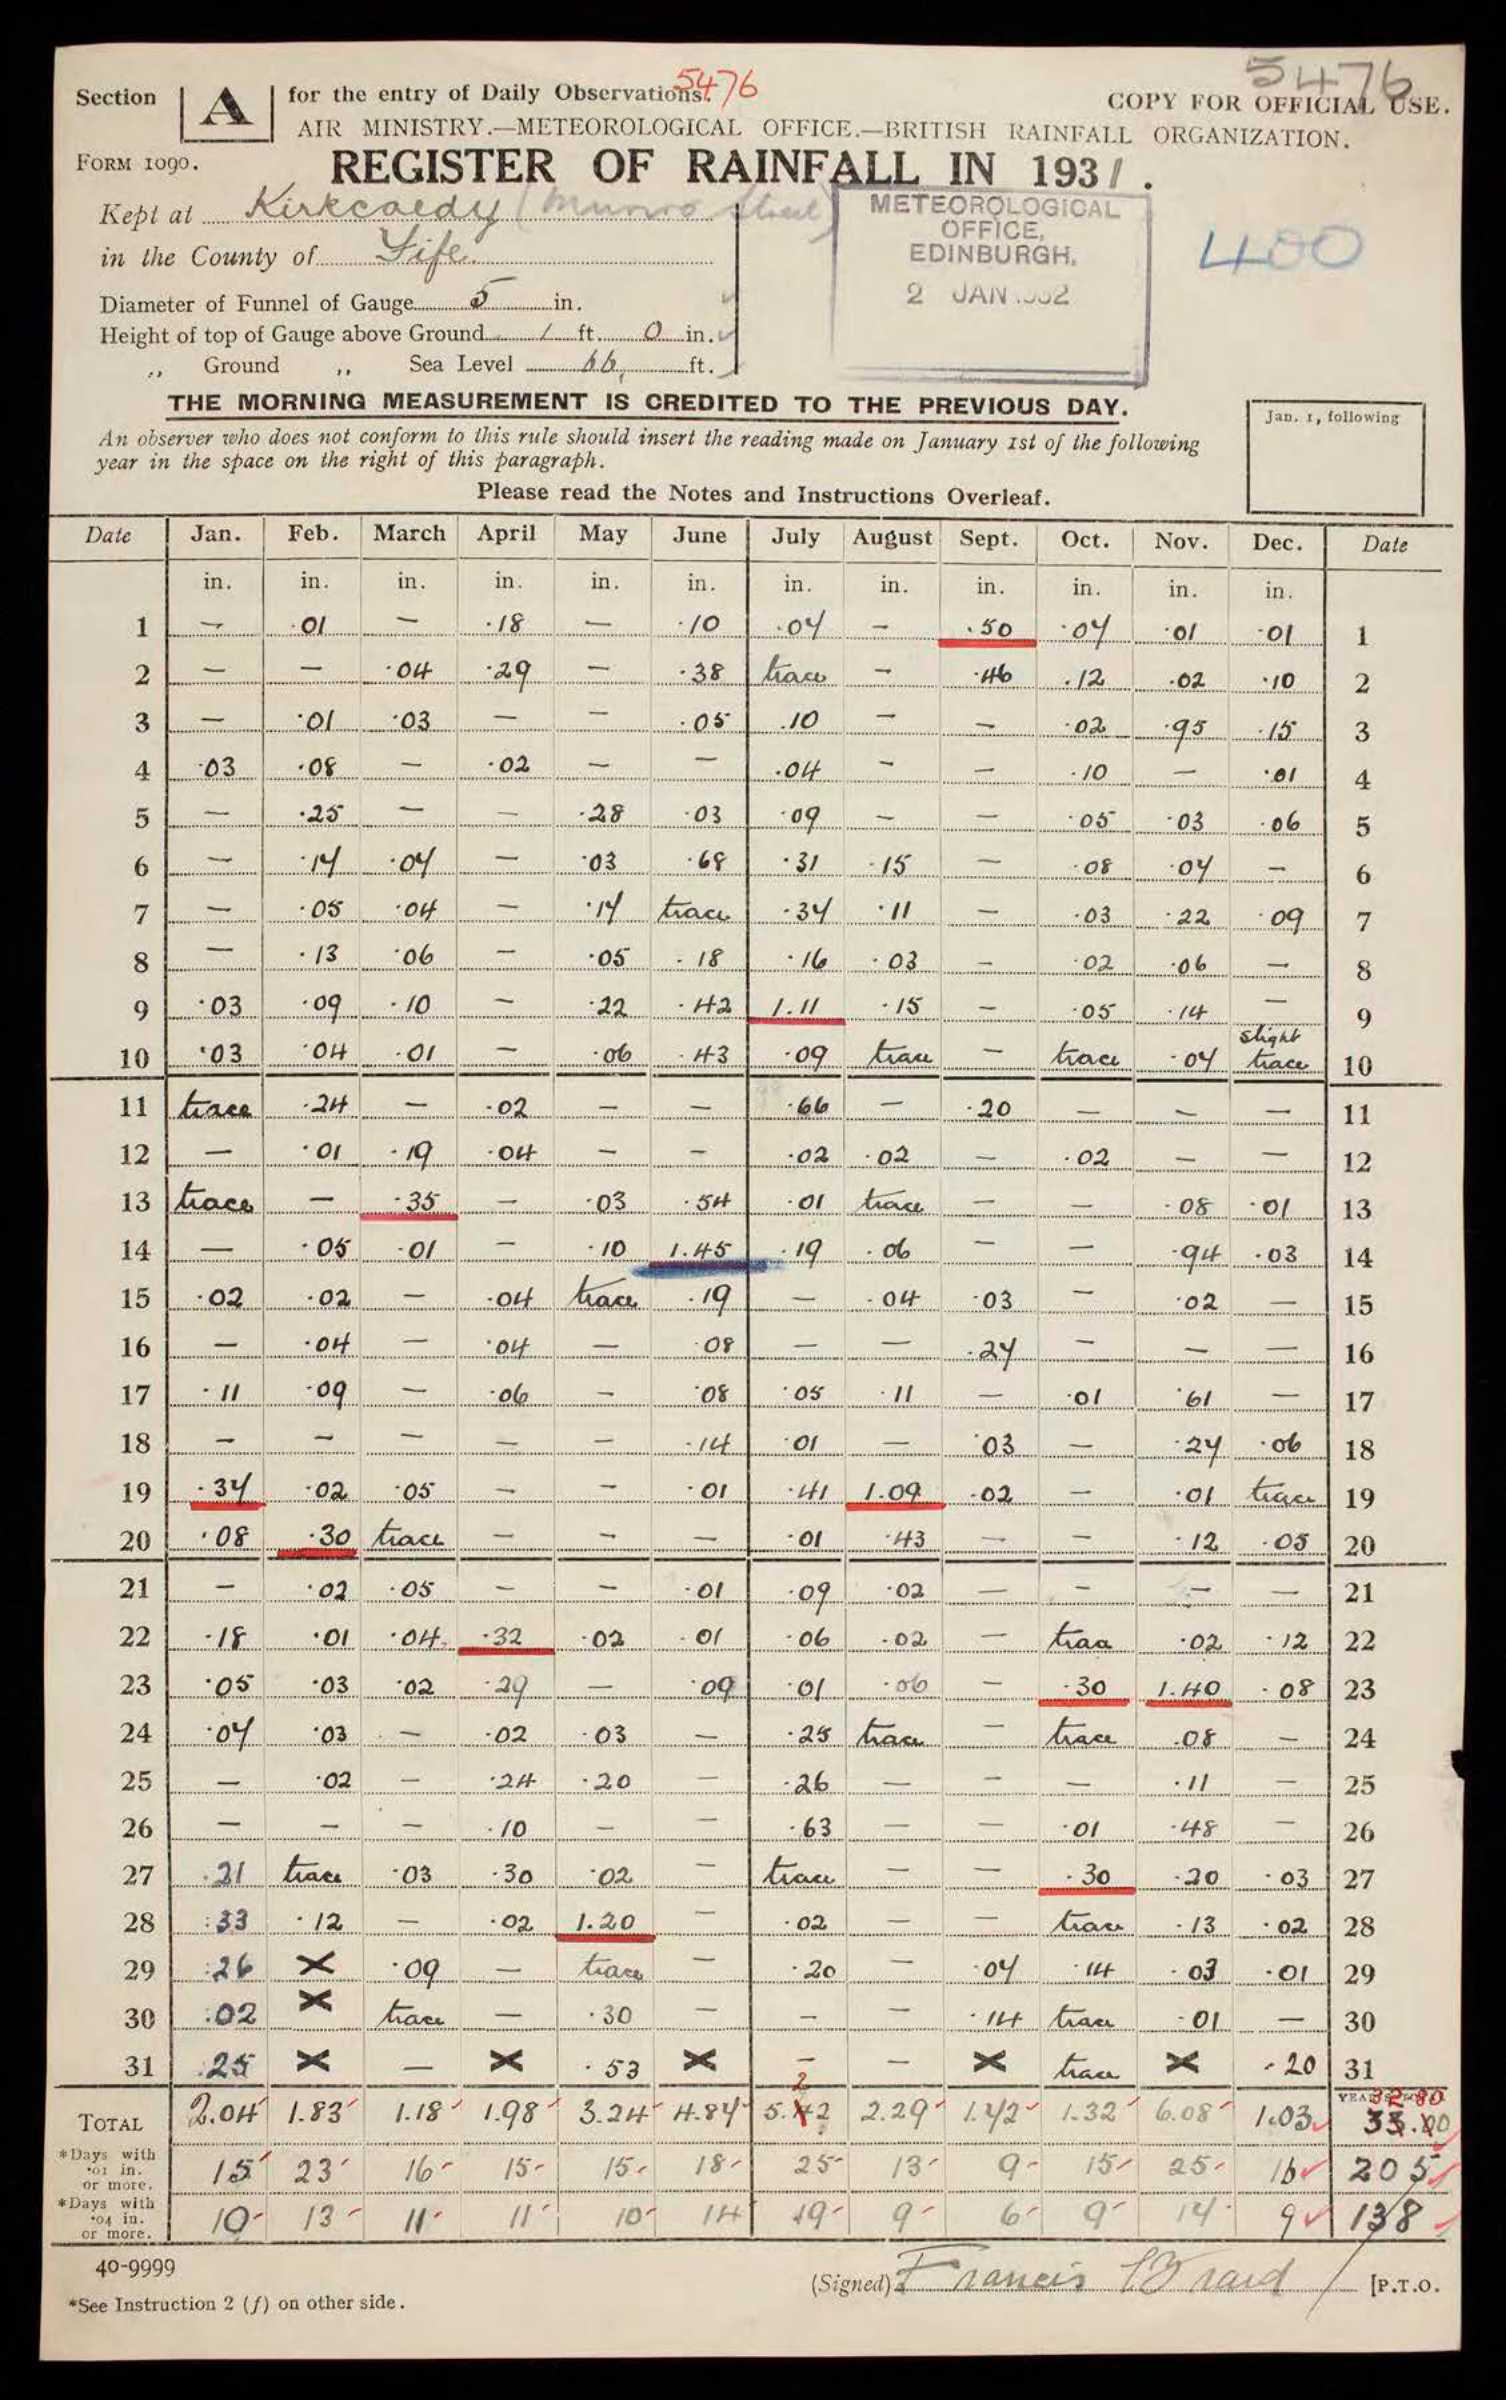 5476
5476
Section A for the entry of Daily Observations.
COPY FOR OFFICIAL USE.
AIR MINISTRY.—METEOROLOGICAL OFFICE.—BRITISH RAINFALL ORGANIZATION.
FORM 1090.
REGISTER OF RAINFALL IN 1931.
Kept at Kirkcaldy (Munro Street)
METEOROLOGICAL
OFFICE,
EDINBURGH.
2 JAN 1932
400
in the County of Fife.
Diameter of Funnel of Gauge 5 in.
Height of top of Gauge above Ground 1 ft. 0 in.
,, Ground ,, Sea Level 66 ft.
THE MORNING MEASUREMENT IS CREDITED TO THE PREVIOUS DAY.
An observer who does not conform to this rule should insert the reading made on January 1st of the following
year in the space on the right of this paragraph.
Jan. 1, following
Please read the Notes and Instructions Overleaf.
Date Jan. Feb. March April May June July August Sept. Oct. Nov. Dec. Date
in. in. in. in. in. in. in. in. in. in. in. in.
1 — ·01 — ·18 — ·10 ·04 — ·50 ·04 ·01 ·01 1
2 — — ·04 ·29 — ·38 trace — ·46 ·12 ·02 ·10 2
3 — ·01 ·03 — — ·05 ·10 — — ·02 ·95 ·15 3
4 ·03 ·08 — ·02 — — ·04 — — ·10 — ·01 4
5 — ·25 — — ·28 ·03 ·09 — — ·05 ·03 ·06 5
6 — ·14 ·04 — ·03 ·68 ·31 ·15 — ·08 ·04 — 6
7 — ·05 ·04 — ·14 trace ·34 ·11 — ·03 ·22 ·09 7
8 — ·13 ·06 — ·05 ·18 ·16 ·03 — ·02 ·06 — 8
9 ·03 ·09 ·10 — ·22 ·42 1.11 ·15 — ·05 ·14 — 9
10 ·03 ·04 ·01 — ·06 ·43 ·09 trace — trace ·04 slight trace 10
11 trace ·24 — ·02 — — ·66 — ·20 — — — 11
12 — ·01 ·19 ·04 — — ·02 ·02 — ·02 — — 12
13 trace — ·35 — ·03 ·54 ·01 trace — — ·08 ·01 13
14 — ·05 ·01 — ·10 1.45 ·19 ·06 — — ·94 ·03 14
15 ·02 ·02 — ·04 trace ·19 — ·04 ·03 — ·02 — 15
16 — ·04 — ·04 — ·08 — — ·24 — — — 16
17 ·11 ·09 — ·06 — ·08 ·05 ·11 — ·01 ·61 — 17
18 — — — — — ·14 ·01 — ·03 — ·24 ·06 18
19 ·34 ·02 ·05 — — ·01 ·41 1.09 ·02 — ·01 trace 19
20 ·08 ·30 trace — — — ·01 ·43 — — ·12 ·05 20
21 — ·02 ·05 — — ·01 ·09 ·02 — — — — 21
22 ·18 ·01 ·04 ·32 ·02 ·01 ·06 ·02 — trace ·02 ·12 22
23 ·05 ·03 ·02 ·29 — ·09 ·01 ·06 — ·30 1.40 ·08 23
24 ·04 ·03 — ·02 ·03 — ·25 trace — trace ·08 — 24
25 — ·02 — ·24 ·20 — ·26 — — — ·11 — 25
26 — — — ·10 — — ·63 — — ·01 ·48 — 26
27 ·21 trace ·03 ·30 ·02 — trace — — ·30 ·20 ·03 27
28 ·33 ·12 — ·02 1.20 — ·02 — — trace ·13 ·02 28
29 ·26 X ·09 — trace — ·20 — ·04 ·14 ·03 ·01 29
30 ·02 X trace — ·30 — — — ·14 trace ·01 — 30
31 ·25 X — X ·53 X — — X trace X ·20 31
TOTAL 2.04 1.83 1.18 1.98 3.24 4.84 5.22 2.29 1.42 1.32 6.08 1.03 32.80
*Days with ·01 in. or more. 15 23 16 15 15 18 25 13 9 15 25 16 205
*Days with ·04 in. or more. 10 13 11 11 10 14 19 9 6 9 14 9 138
40-9999
(Signed) Francis [P.T.O.
*See Instruction 2 (f) on other side.